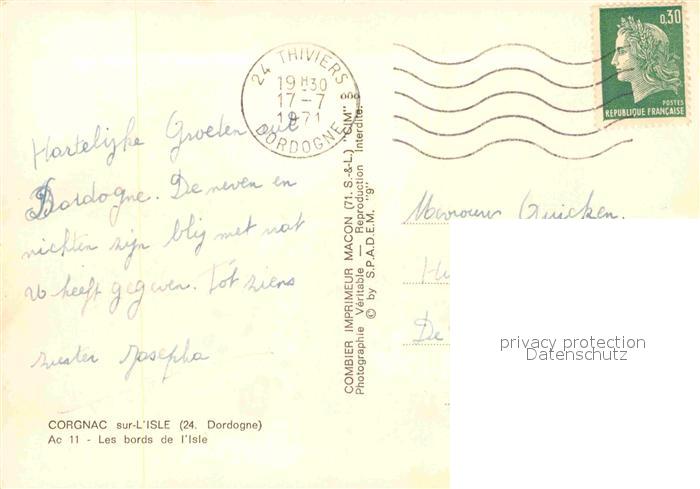 Hartelijke Groeten uit
Dordogne. De neven en
nichten zijn blij met wat
U heeft gegeven. Tot ziens
zuster Josepha
CORGNAC sur-L'ISLE (24. Dordogne)
Ac 11 - Les bords de l'Isle
24 THIVIERS
19H30
17-7
1971
DORDOGNE
COMBIER IMPRIMEUR MACON (71. S.-&-L.) "CIM"
Photographie Véritable — Reproduction Interdite.
© by S.P.A.D.E.M. "9"
0,30
POSTES
REPUBLIQUE FRANÇAISE
Mevrouw
De
privacy protection
Datenschutz